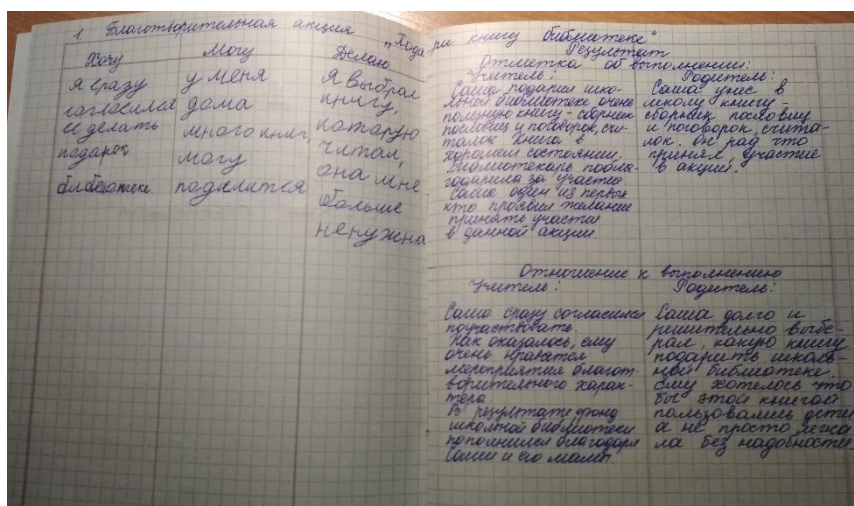 1. Благотворительная акция "Подари книгу библиотеке"
Хочу
Я сразу
согласился
сделать
подарок
библеотеке
Могу
у меня
дома
много книг,
могу
поделится
Делаю
Я выбрал
книгу,
которую
читал,
она мне
больше
ненужна
Результат
Отметка об выполнении:
Учитель:
Саша подарил шко-
льной библиотеке очень
полезную книгу - сборник
пословиц и поговорок, счи-
талок. Книга в
хорошем состоянии.
Библиотекарь побла-
годарила за участие
Саша один из первых
кто проявил желание
принять участие
в данной акции.
Родитель:
Саша унес в
школу книгу -
сборник пословиц
и поговорок, считa-
лок. Он рад что
принял участие
в акции.
Отношение к выполнению
Учитель:
Саша сразу согласился
поучаствовать.
Как оказалось, ему
очень нравятся
мероприятия благот-
ворительного харак-
тера
В результате фонд
школьной библиотеки
пополнился благодаря
Саши и его мамы.
Родитель:
Саша долго и
решительно выбе-
рал, какую книгу
подарить школь-
ной библиотеке.
Ему хотелось что
бы этой книгой
пользовались дети
а не просто лежа
ла без надобности.